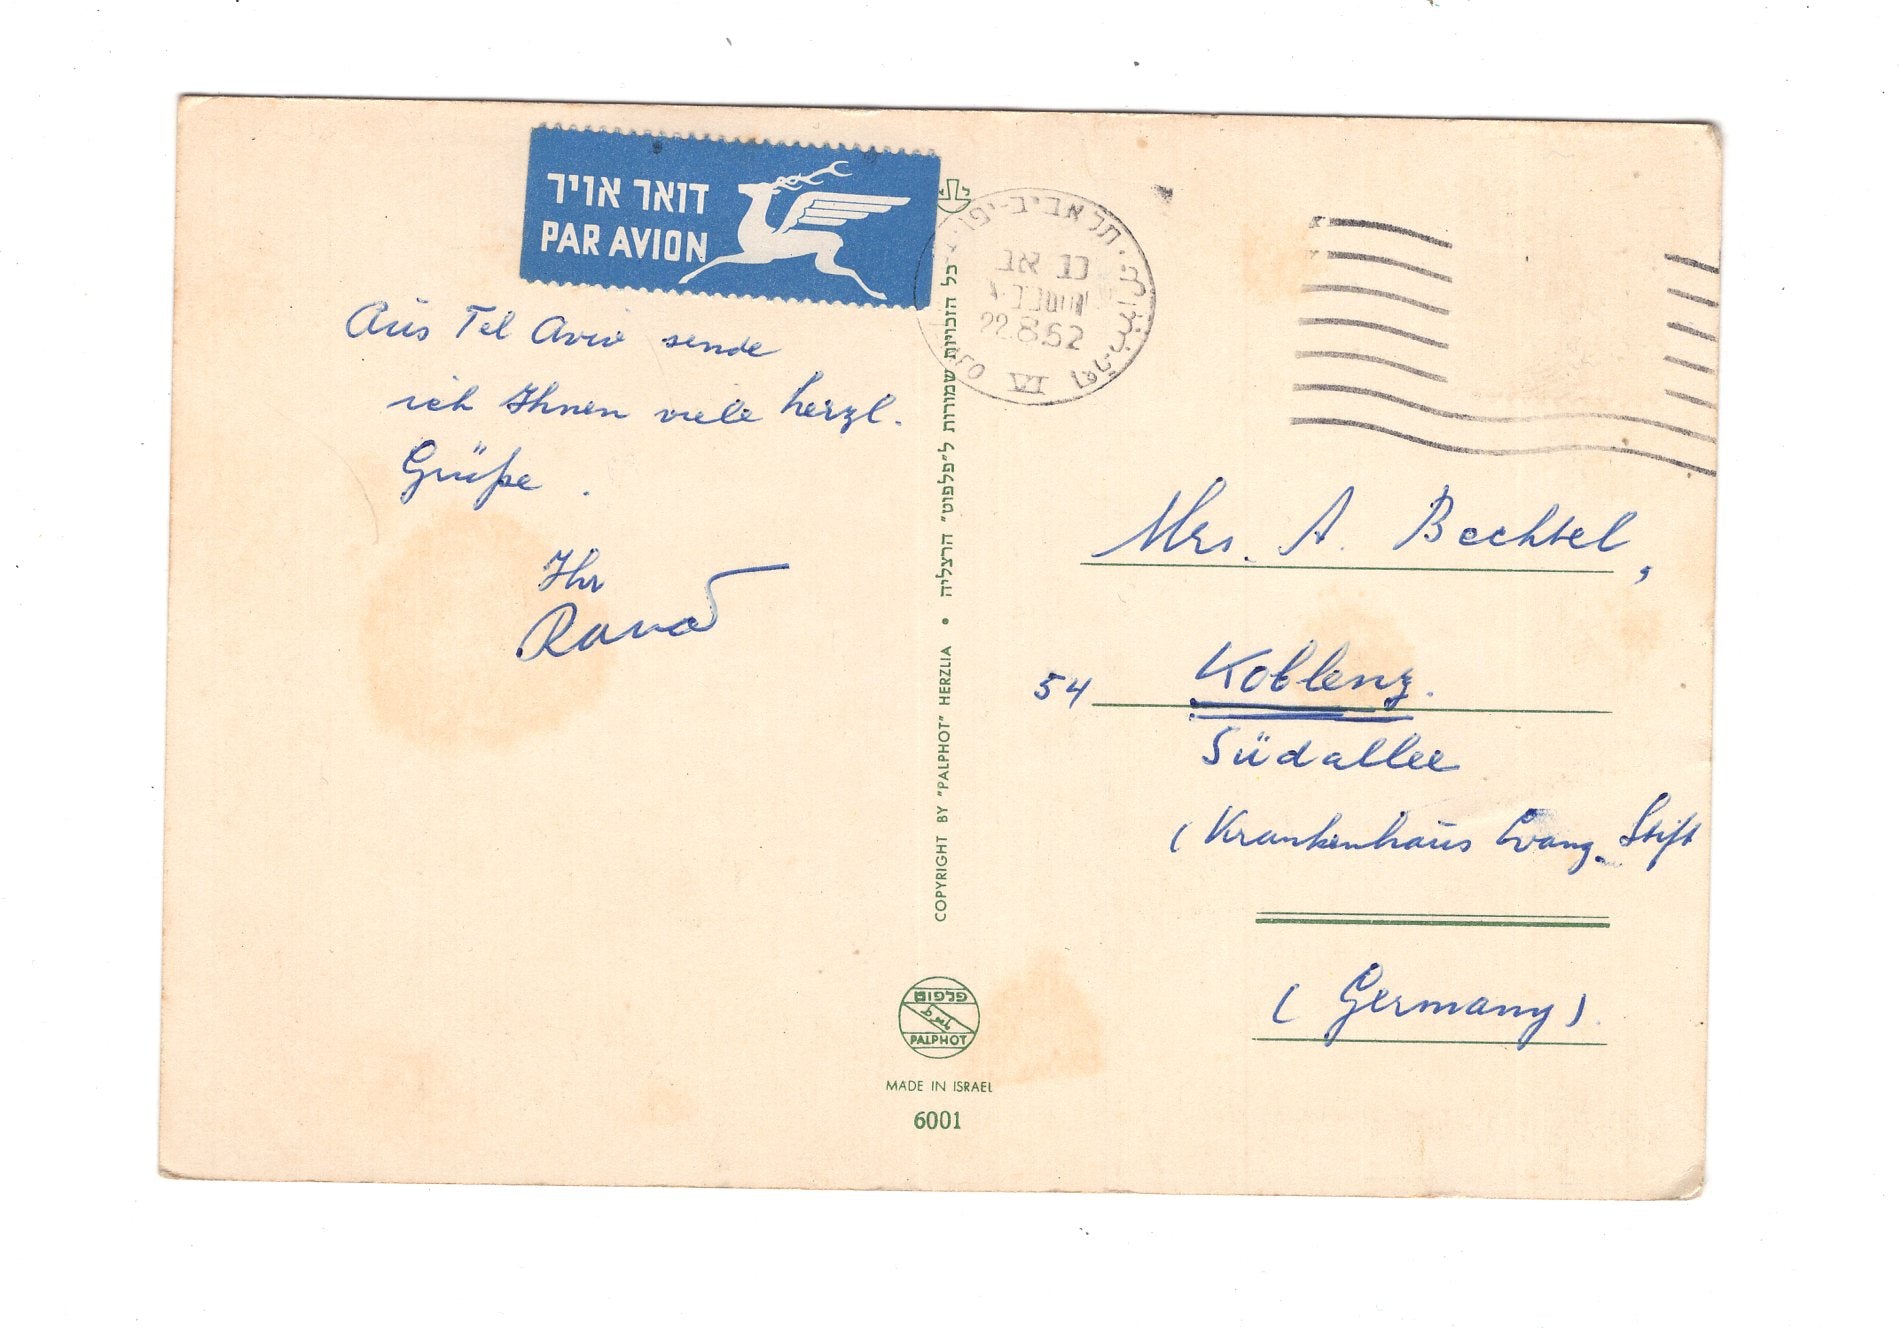 דואר אויר
PAR AVION
Aus Tel Aviv sende
ich Ihnen viele herzl.
Grüße.
Ihr
תל אביב-יפו
כב אב
22.8.62
VI
Mrs. A. Bechtel,
54 Koblenz.
Südallee
(Krankenhaus Evang. Stift
(Germany).
כל הזכויות שמורות ל"פלפוט" הרצליה •
COPYRIGHT BY "PALPHOT" HERZLIA
פלפוט
PALPHOT
MADE IN ISRAEL
6001